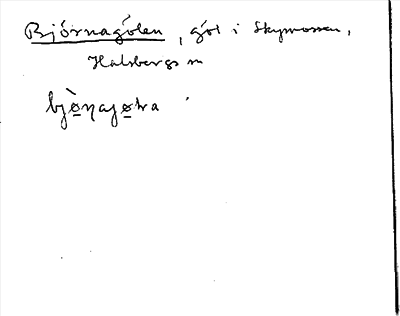 Björnagölen, göl i Skymossen,
Halsbergs m
bjø̀ŋajøtra